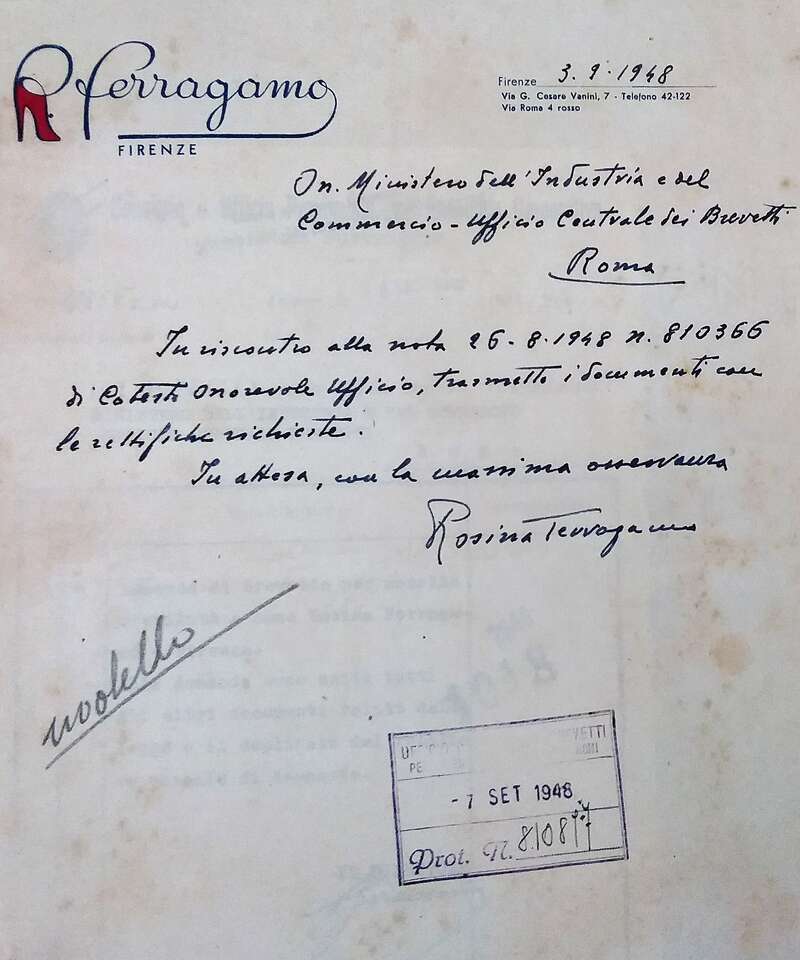 R. Ferragamo
FIRENZE
Firenze 3.9.1948
Via G. Cesare Vanini, 7 - Telefono 42-122
Via Roma 4 rosso
On. Ministero dell'Industria e del
Commercio - Ufficio Centrale dei Brevetti
Roma
In riscontro alla nota 26-8-1948 n. 810366
di Cotesto Onorevole Ufficio, trasmetto i documenti con
le rettifiche richieste.
In attesa, con la massima osservanza
Rosina Ferragamo
modello
-7 SET 1948
Prot. N. 810877